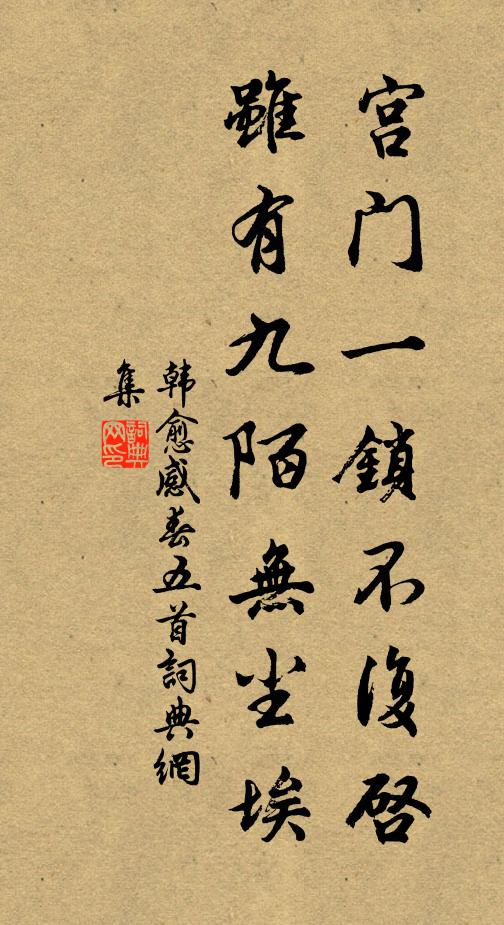 宫门一鎖不復啓
雖有九陌無尘埃
韩愈感春五首詞典網
集
詞典
网印